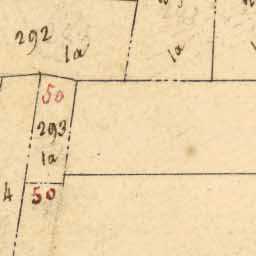 292
1a
1a
50
293
1a
4
50